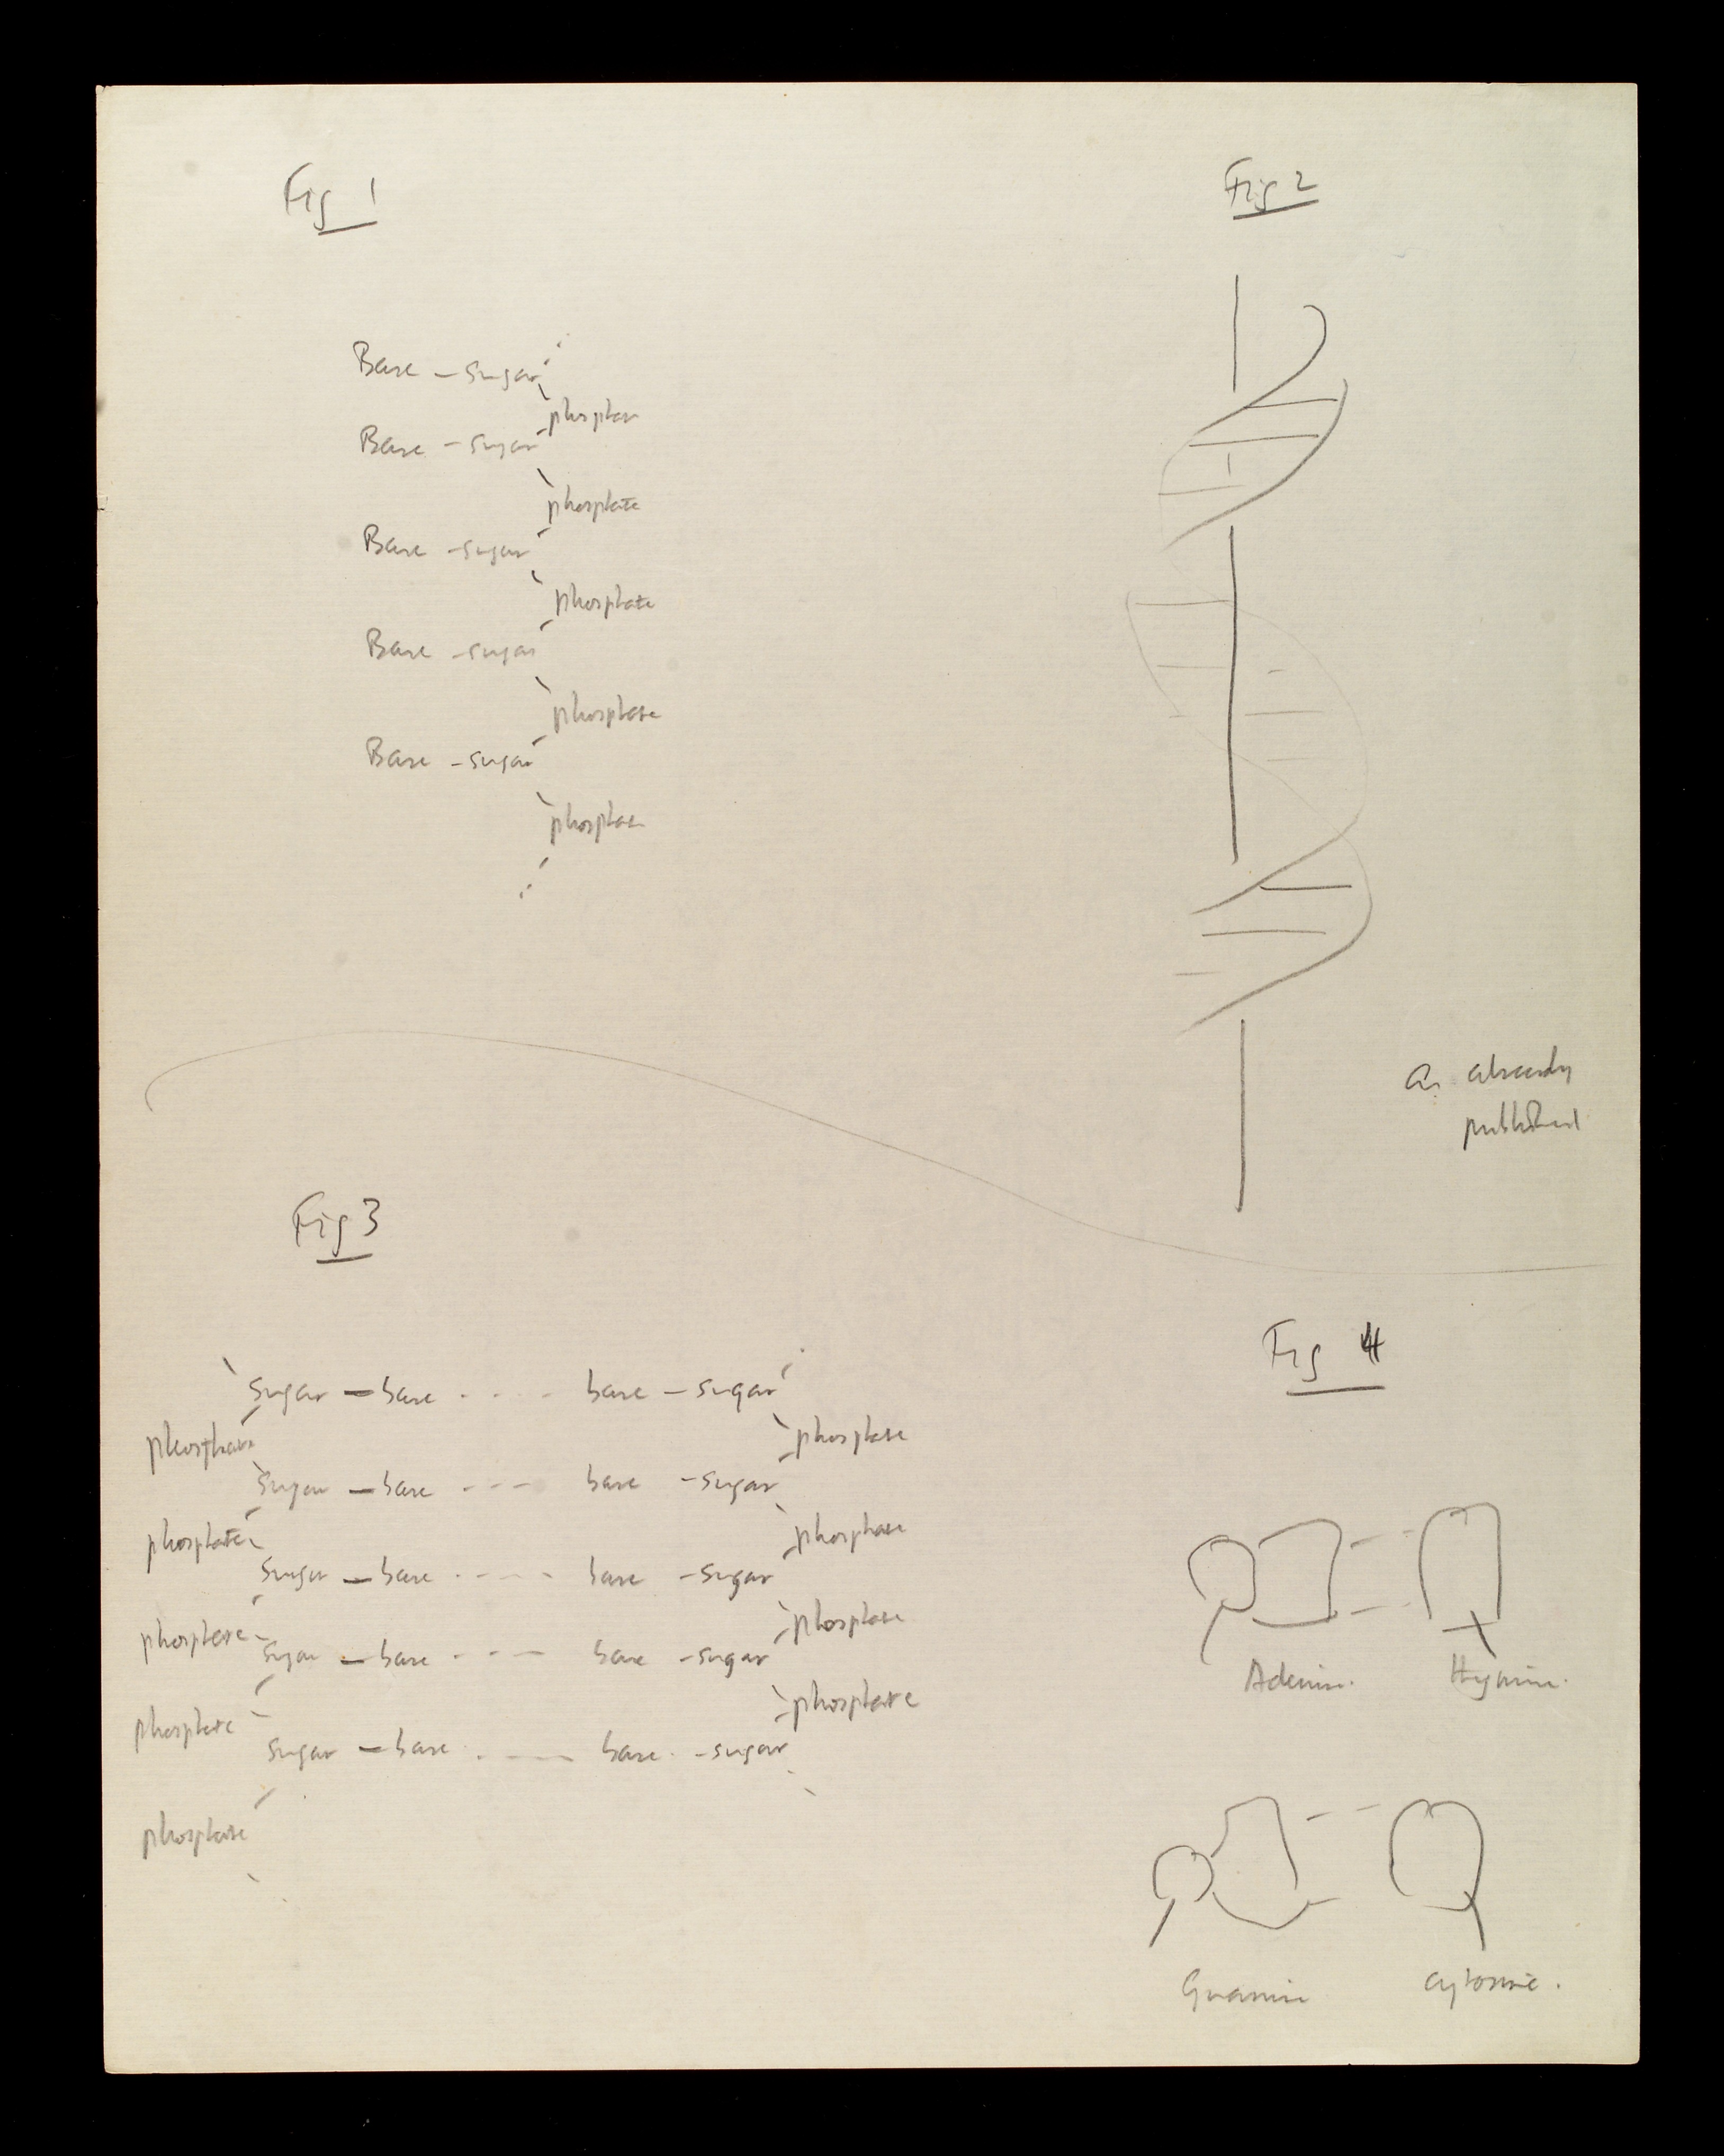 Fig 1
Base - sugar
phosphate
Base - sugar
phosphate
Base - sugar
phosphate
Base - sugar
phosphate
Base - sugar
phosphate
Fig 2
as already
published
Fig 3
sugar - base - - - base - sugar
phosphate phosphate
sugar - base - - - base - sugar
phosphate phosphate
sugar - base - - - - base - sugar
phosphate phosphate
sugar - base - - - base - sugar
phosphate phosphate
sugar - base - - - base - sugar
phosphate
Fig 4
Adenine. thymine.
Guanine cytosine.